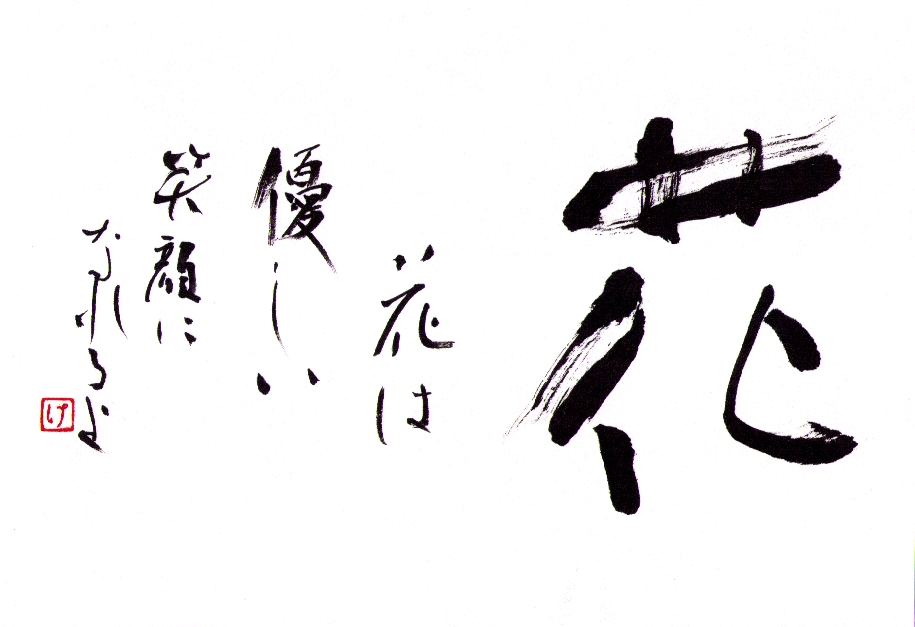 花
花は
優しい
笑顔に
なれるよ
げ